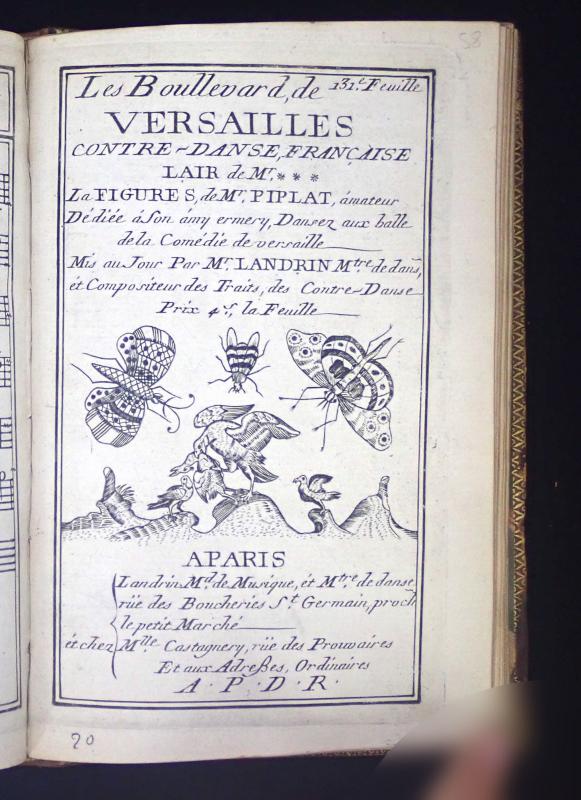 58
Les Boullevard, de 131.e Feuille
VERSAILLES
CONTRE-DANSE, FRANÇAISE
LAIR de Mr. ***
La FIGURES, de Mr. PIPLAT, ámateur
Dédiée á Son ámy ermery, Dansez aux balle
de la Comédie de versaille
Mis au Jour Par Mr. LANDRIN Mtre. de dans,
ét Compositeur des Traits, des Contre-Danse
Prix 4s. la Feuille
APARIS
Landrin Md. de Musique, ét Mtre. de danse
rüe des Boucheries St. Germain, proch
le petit Marché
ét chez Mlle Castagnery, rüe des Prouvaires
Et aux Adreßes, Ordinaires
A. P. D. R.
20